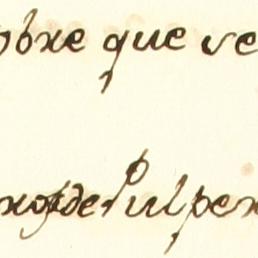 obre que se
de Pulper